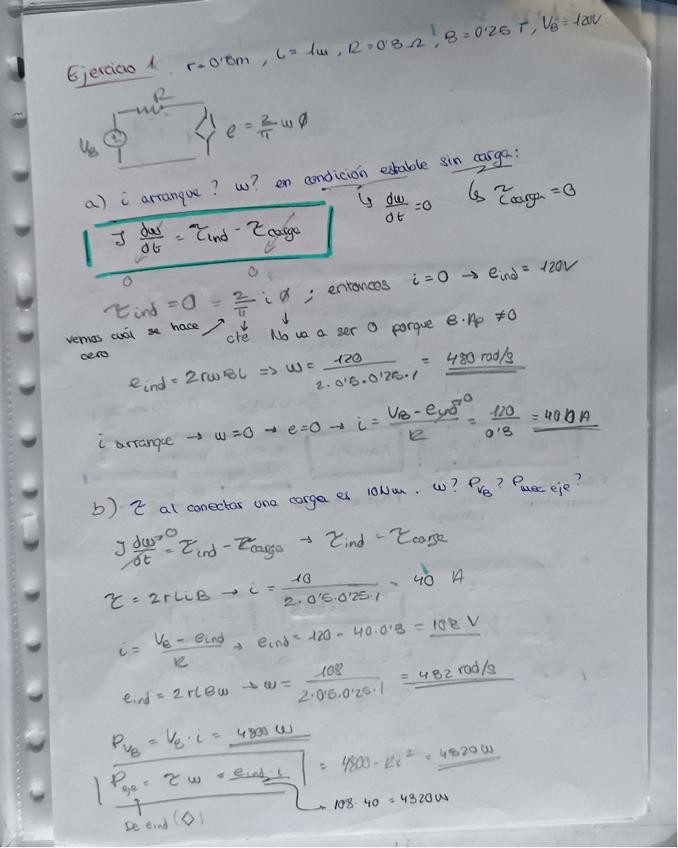 Ejercicio 1. r=0'5m, l=1m, R=0'3Ω, B=0'25T, VB=120V
R
VB e = 2/π ω φ
a) i arranque? ω? en condición estable sin carga:
↳ dω/dt = 0 ↳ τcarga = 0
J dω/dt = τind - τcarga
0 0
τind = 0 = 2/π i φ ; entonces i=0 → eind = 120V
vemos cuál se hace cero cte No va a ser 0 porque B·Ap ≠ 0
eind = 2rωBl => ω = 120/2·0'5·0'25·1 = 480 rad/s
i arranque → ω=0 → e=0 → i = VB - eind→0/R = 120/0'3 = 400 A
b) τ al conectar una carga es 10Nm. ω? PVB? Pmec eje?
J dω→0/dt = τind - τcarga → τind = τcarga
τ = 2rliB → i = 10/2·0'5·0'25·1 = 40 A
i = VB - eind/R → eind = 120 - 40·0'3 = 108 V
eind = 2rlBω → ω = 108/2·0'5·0'25·1 = 432 rad/s
PVB = VB·i = 4800 W
Peje = τω = eind·i = 4800 - Ri² = 4320 W
→ 108·40 = 4320W
De eind (◇)